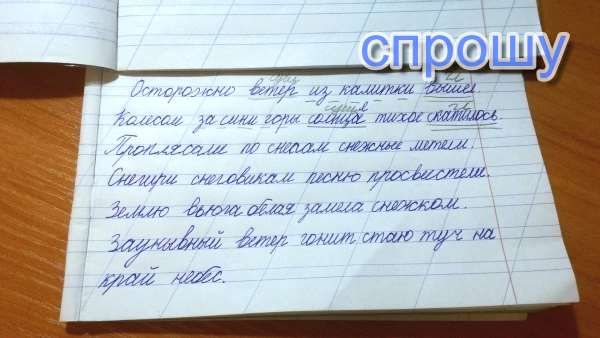 спрошу
Осторожно ветер из калитки вышел.
Колесом за сини горы солнце тихое скатилось
Проплясали по снегам снежные метели.
Снегири снеговикам песню просвистели.
Землю вьюга белая замела снежком.
Заунывный ветер гонит стаю туч на
край небес.